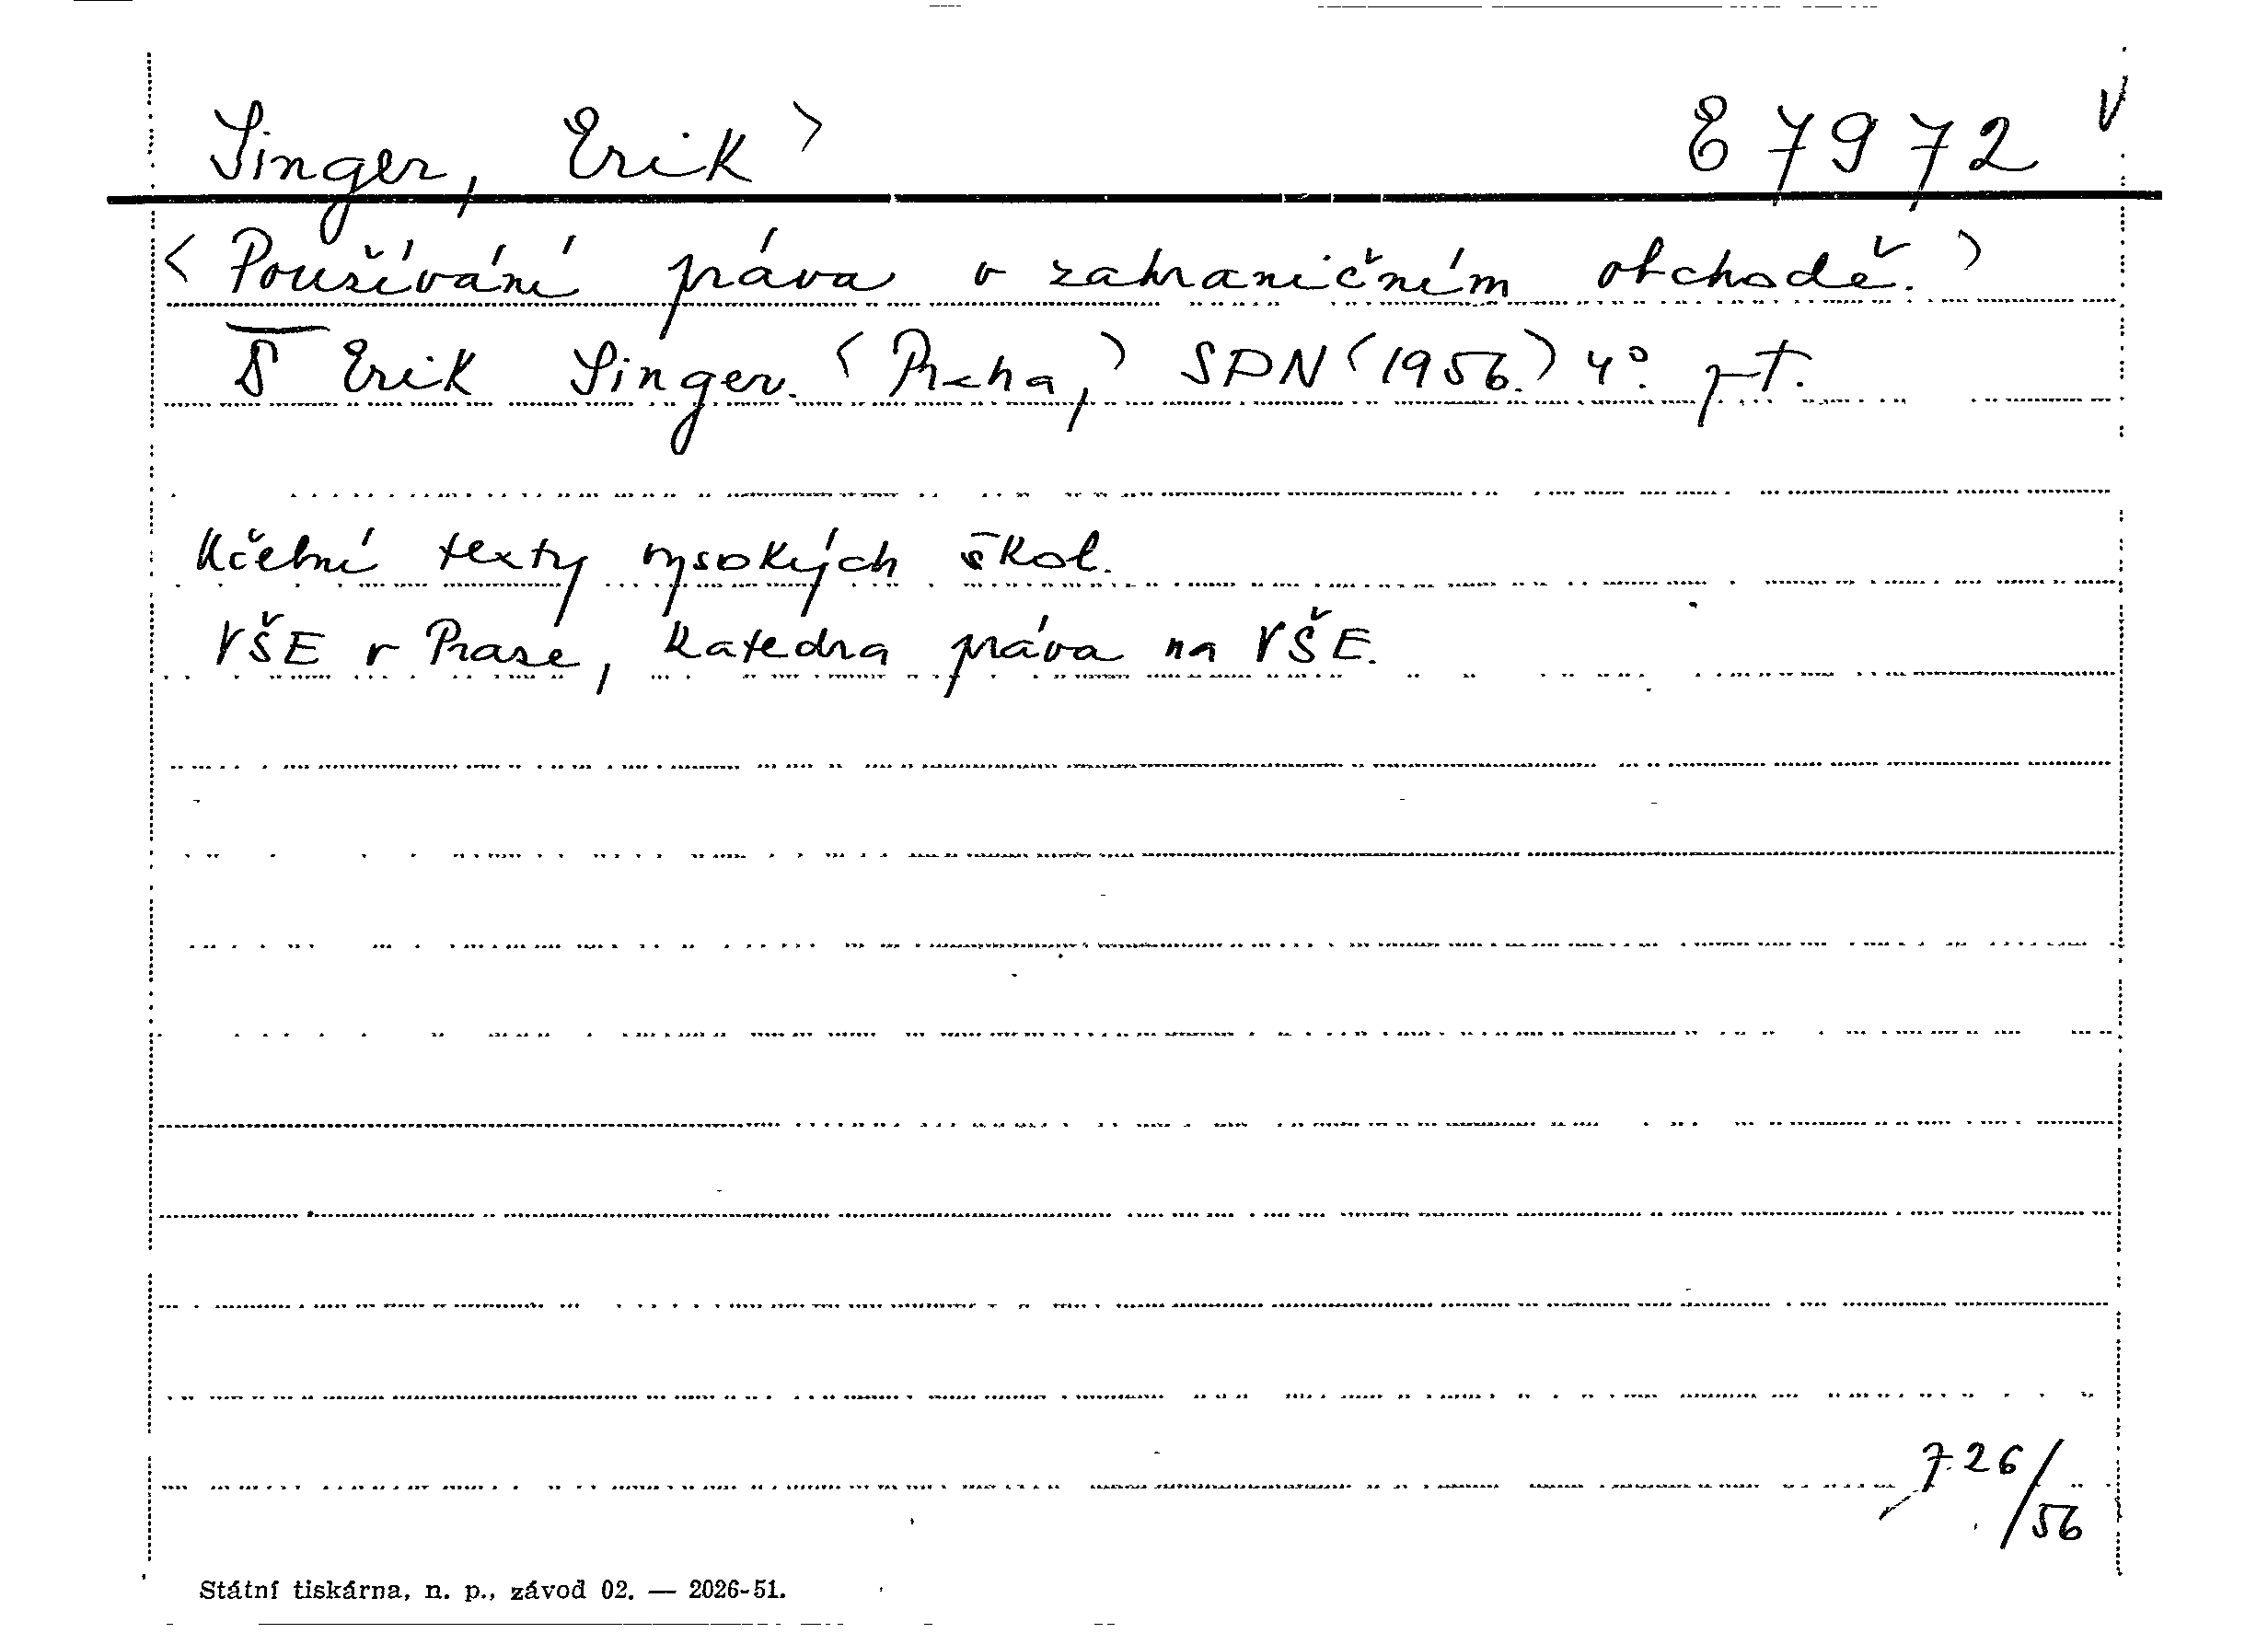 Singer, Erik > E 7972 V
< Používání práva v zahraničním obchodě. >
Erik Singer. < Praha, > SPN < 1956. > 4°.
Učební texty vysokých škol.
VŠE v Praze, Katedra práva na VŠE.
726/
56
Státní tiskárna, n. p., závod 02. — 2026-51.